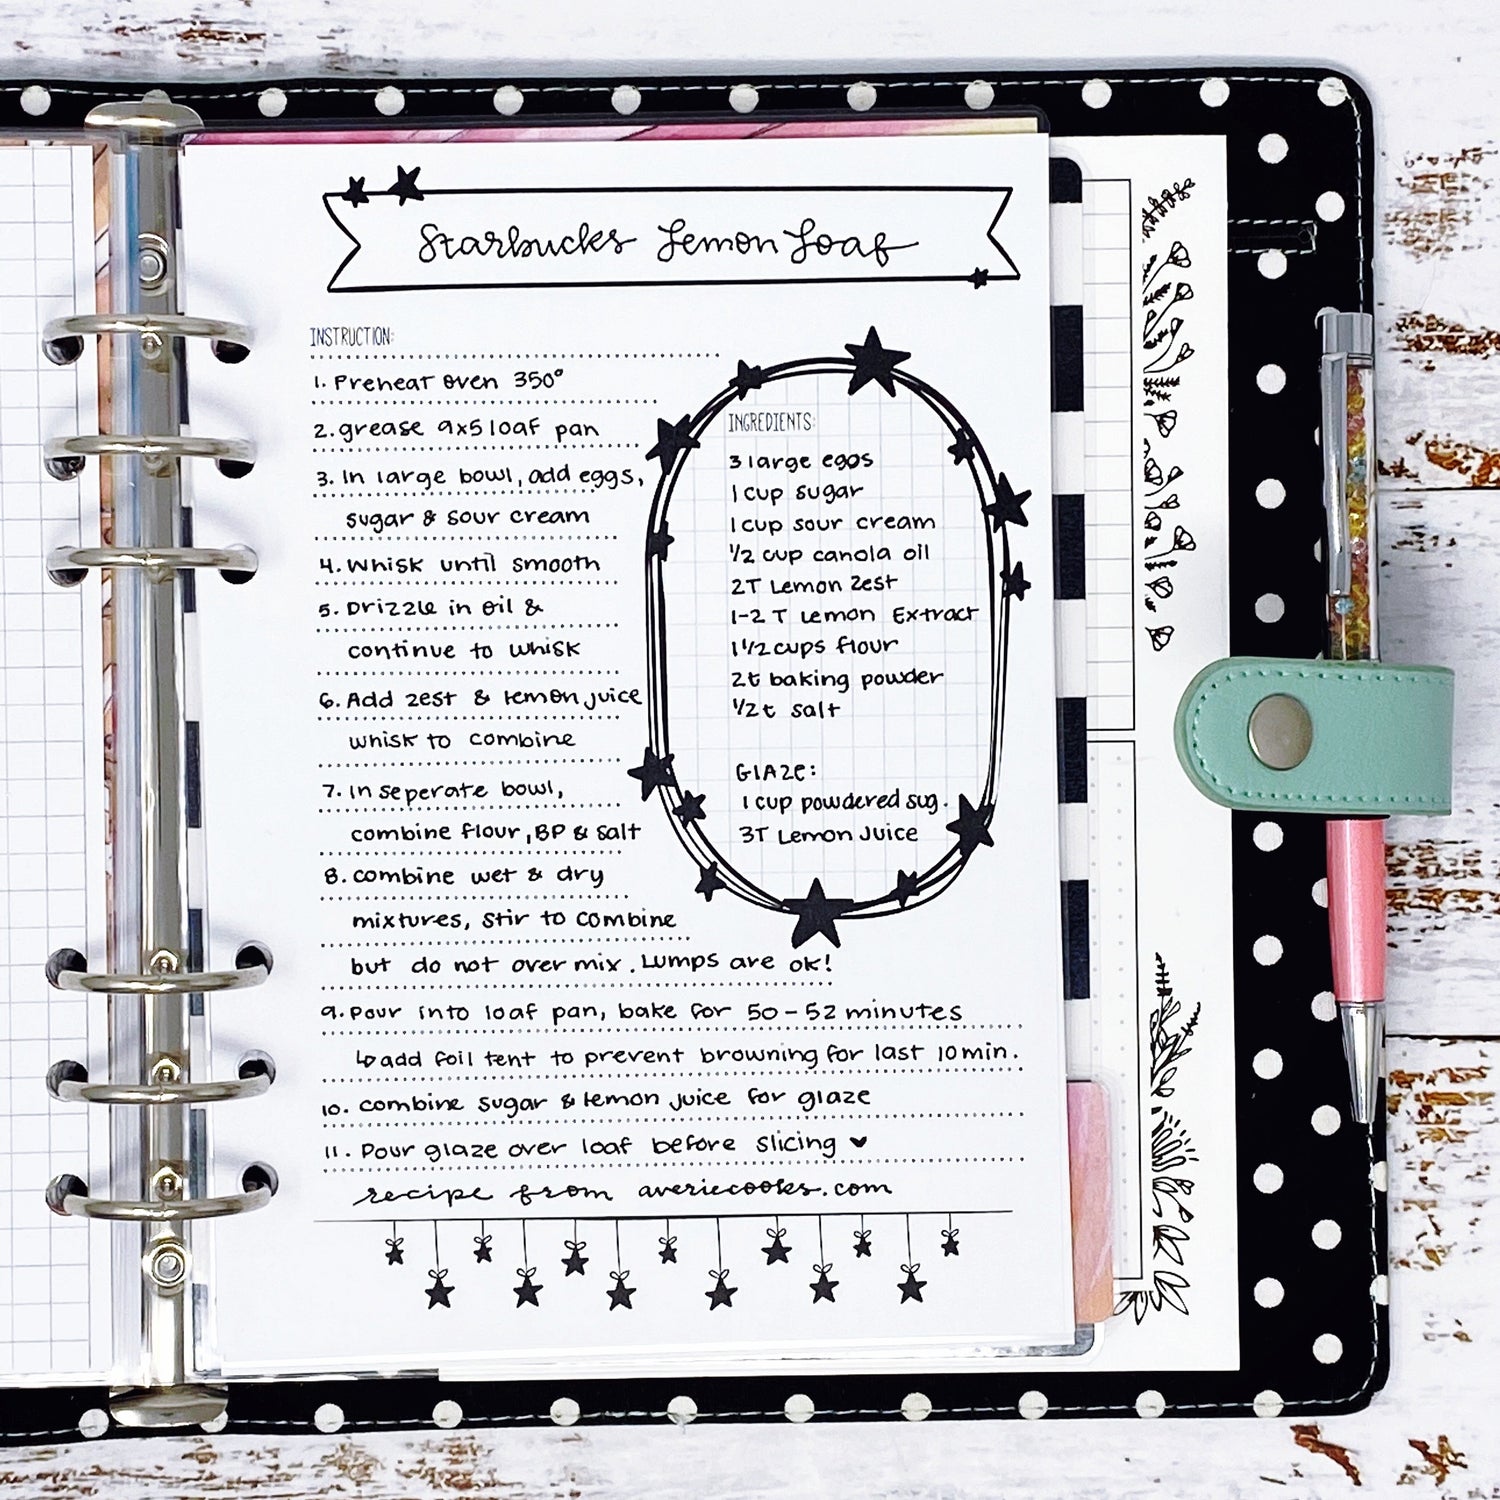 Starbucks Lemon Loaf
INSTRUCTION:
1. Preheat oven 350°
2. grease 9x5 loaf pan
3. In large bowl, add eggs,
sugar & sour cream
4. Whisk until smooth
5. Drizzle in oil &
continue to whisk
6. Add zest & lemon juice
whisk to combine
7. In seperate bowl,
combine flour, BP & salt
8. combine wet & dry
mixtures, stir to combine
but do not over mix. Lumps are ok!
9. Pour into loaf pan, bake for 50-52 minutes
↳ add foil tent to prevent browning for last 10 min.
10. combine sugar & lemon juice for glaze
11. Pour glaze over loaf before slicing ♥
recipe from averiecooks.com
INGREDIENTS:
3 large eggs
1 cup sugar
1 cup sour cream
1/2 cup canola oil
2T Lemon Zest
1-2 T Lemon Extract
1 1/2 cups flour
2t baking powder
1/2 t salt
GLAZE:
1 cup powdered sug.
3T Lemon Juice